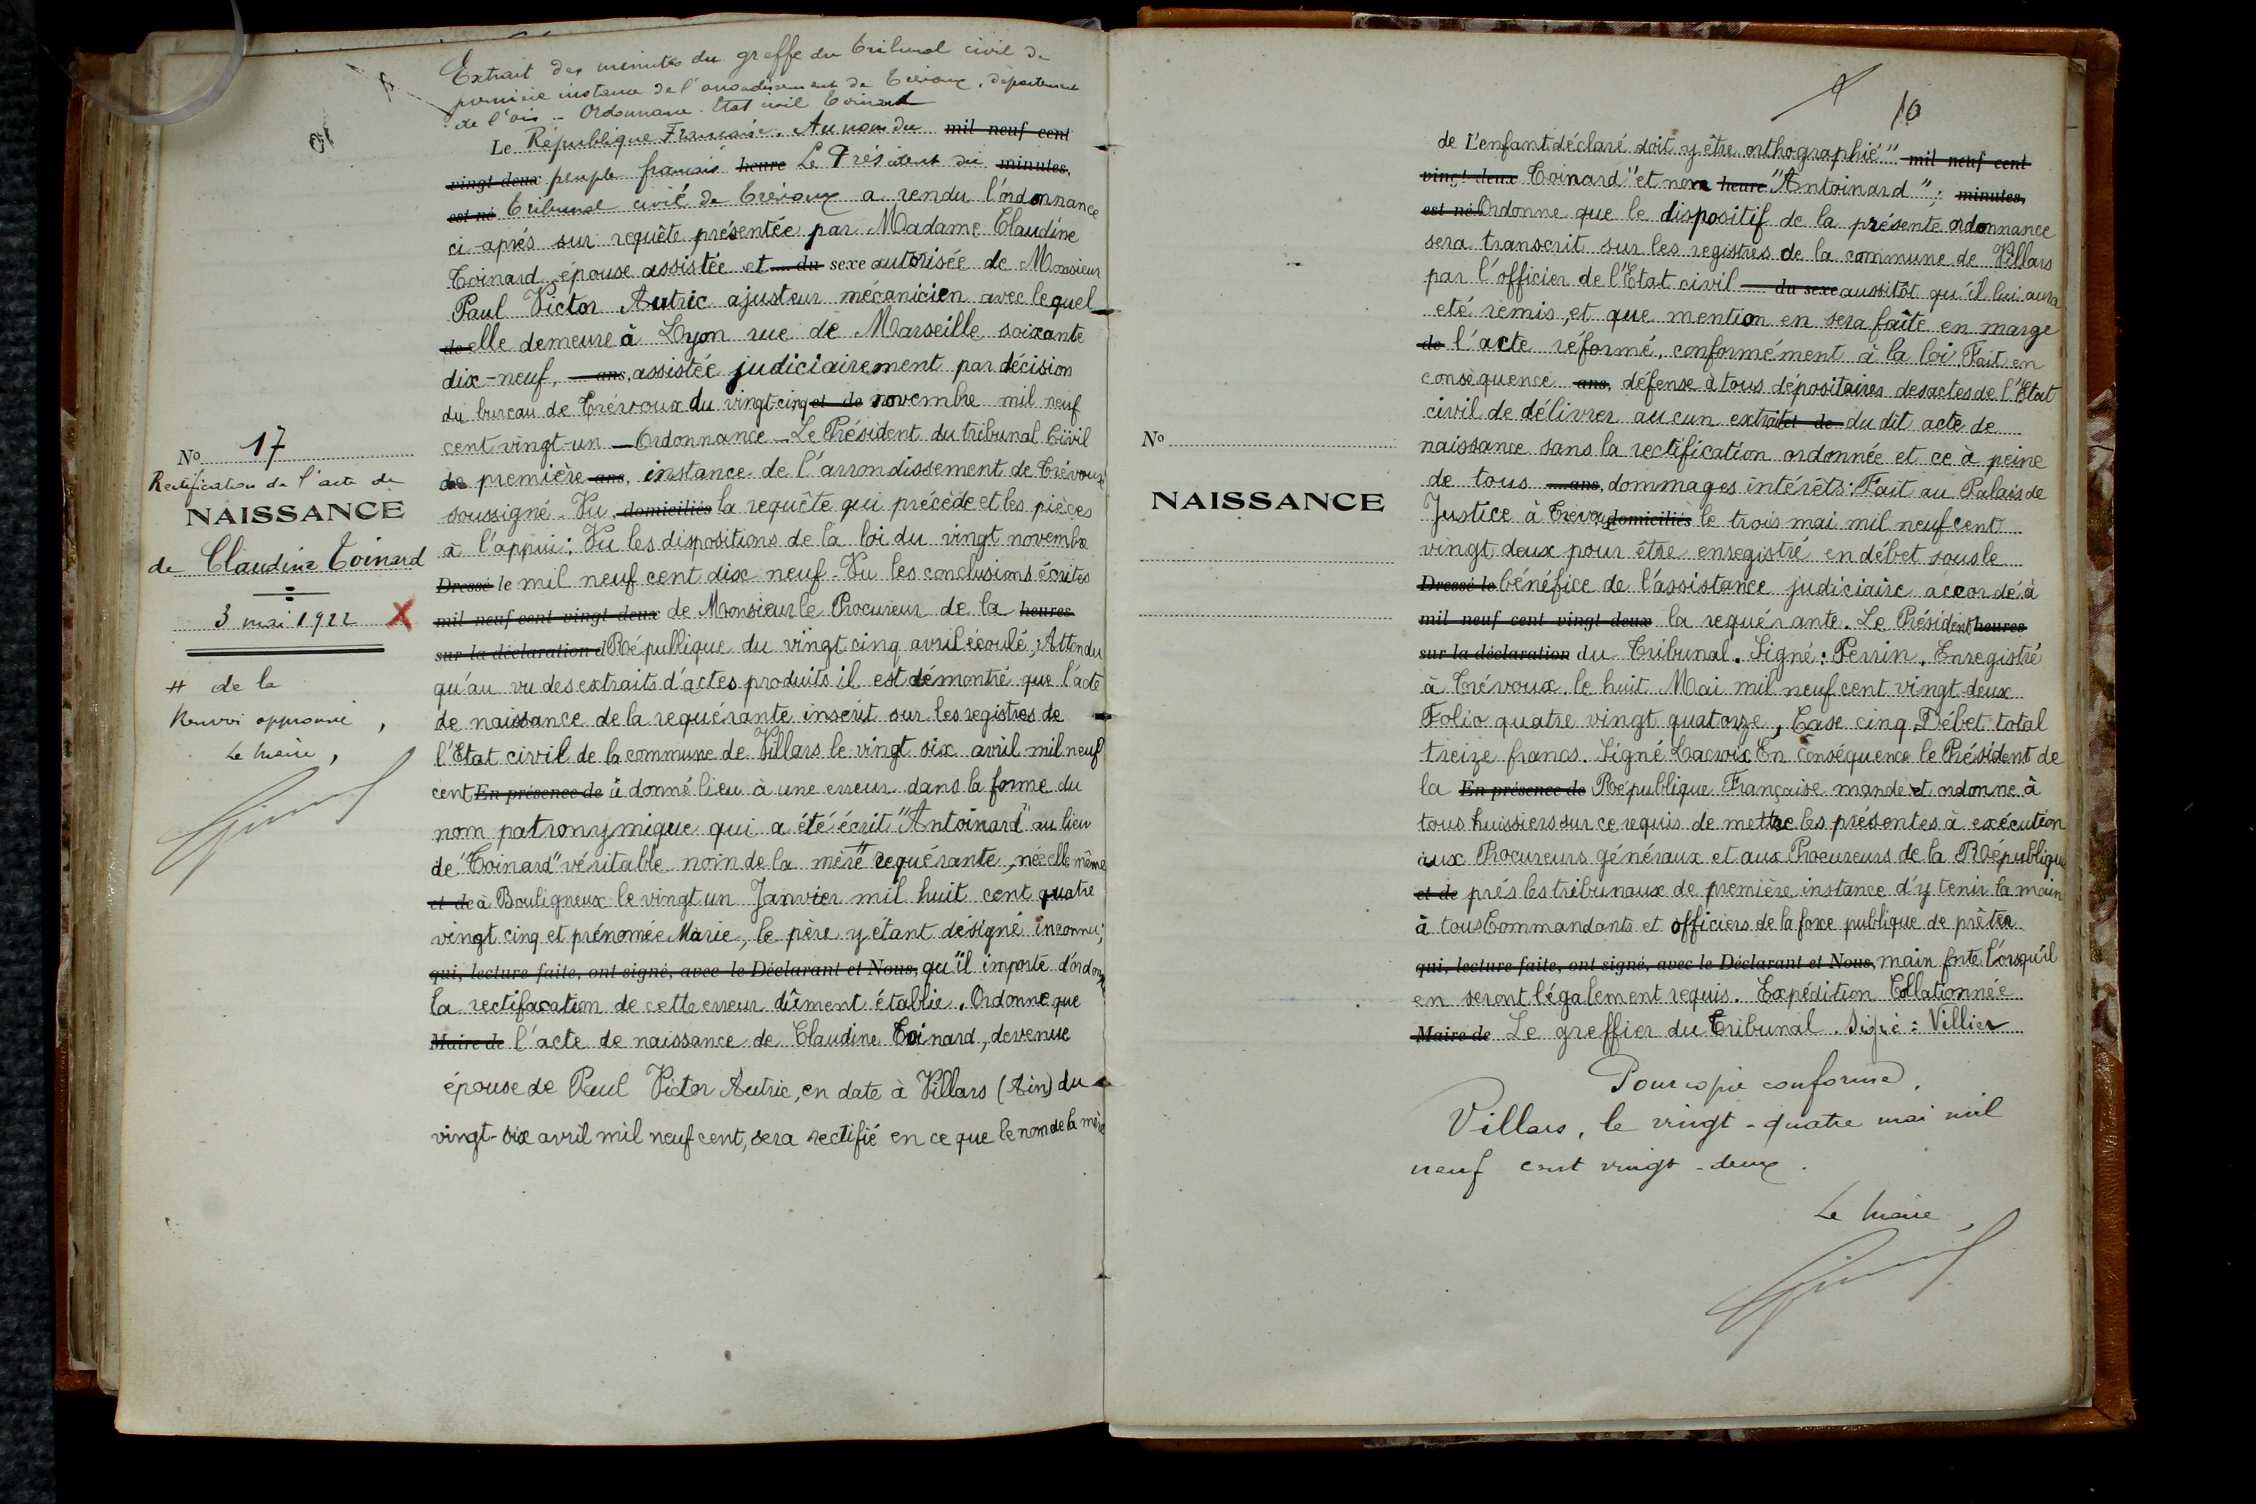 Extrait des minutes du greffe du tribunal civil de
première instance de l'arrondissement de Trévoux, département
de l'Ain - Ordonnance. Etat civil Toinard
Le République Française. Au nom du mil neuf cent
vingt-deux peuple français heure Le Président du minutes,
est né Tribunal civil de Trévoux a rendu l'ordonnance
ci-après sur requête présentée par Madame Claudine
Toinard épouse assistée et du sexe autorisée de Monsieur
Paul Victor Autric ajusteur mécanicien avec lequel
de elle demeure à Lyon rue de Marseille soixante
dix-neuf, ans, assistée judiciairement par décision
du bureau de Trévoux du vingt-cinq et de novembre mil neuf
cent vingt-un _ Ordonnance _ Le Président du tribunal Civil
de première ans, instance de l'arrondissement de Trévoux
soussigné - Vu domiciliés la requête qui précède et les pièces
à l'appui; Vu les dispositions de la loi du vingt novembre
Dressé le mil neuf cent dix neuf - Vu les conclusions écrites
mil neuf cent vingt-deux de Monsieur le Procureur de la heures
sur la déclaration d République du vingt cinq avril écoulé; Attendu
qu'au vu des extraits d'actes produits il est démontré que l'acte
de naissance de la requérante inscrit sur les registres de
l'Etat civil de la commune de Villars le vingt six avril mil neuf
cent En présence de à donné lieu à une erreur dans la forme du
nom patronymique qui a été écrit "Antoinard" au lieu
de "Toinard" véritable nom de la mère # requérante, née elle même
et de à Bouligneux le vingt un Janvier mil huit cent quatre
vingt cinq et prénomée Marie, le père y étant désigné inconnu;
qui, lecture faite, ont signé, avec le Déclarant et Nous, qu'il importe d'ordonner
la rectifacation de cette erreur dûment établie. Ordonne que
Maire de l'acte de naissance de Claudine Toinard, devenue
épouse de Paul Victor Autric, en date à Villars (Ain) du
vingt-six avril mil neuf cent, sera rectifié en ce que le nom de la mère
No 17
Rectification de l'acte de
NAISSANCE
de Claudine Toinard
3 mai 1922 X
# de la
Renvoi approuvé,
Le Maire,
10
de L'enfant déclaré doit y être orthographié" mil neuf cent
vingt-deux Toinard" et non heure "Antoinard"; minutes,
est né Ordonne que le dispositif de la présente ordonnance
sera transcrit sur les registres de la commune de Villars
par l'officier de l'Etat civil du sexe aussitôt qu'il lui aura
eté remis, et que mention en sera faîte en marge
de l'acte réformé, conformément à la loi Fait en
conséquence ans, défense à tous dépositaires des actes de l'Etat
civil de délivrer aucun extrait et de du dit acte de
naissance sans la rectification ordonnée et ce à peine
de tous ans, dommages intérêts. Fait au Palais de
Justice à Trévoux domiciliés le trois mai mil neuf cent
vingt deux pour être enregistré en débet sous le
Dressé le bénéfice de l'assistance judiciaire accordé à
mil neuf cent vingt-deux la requérante. Le Président heures
sur la déclaration du Tribunal. Signé: Perrin. Enregistré
à Trévoux le huit Mai mil neuf cent vingt-deux
Folio quatre vingt quatorze, Case cinq Débet total
treize francs. Signé Lacroix En conséquence le Président de
la En présence de République Française mande et ordonne à
tous huissiers sur ce requis de mettre les présentes à exécution
aux Procureurs généraux et aux Procureurs de la République
et de prés les tribunaux de première instance d'y tenir la main
à tous Commandants et officiers de la force publique de prêter
qui, lecture faite, ont signé, avec le Déclarant et Nous, main forte lorsqu'il
en seront légalement requis. Expédition Collationnée
Maire de Le greffier du Tribunal. Signé: Villier
Pour copie conforme,
Villars, le vingt-quatre mai mil
neuf cent vingt-deux.
Le Maire,
No
NAISSANCE